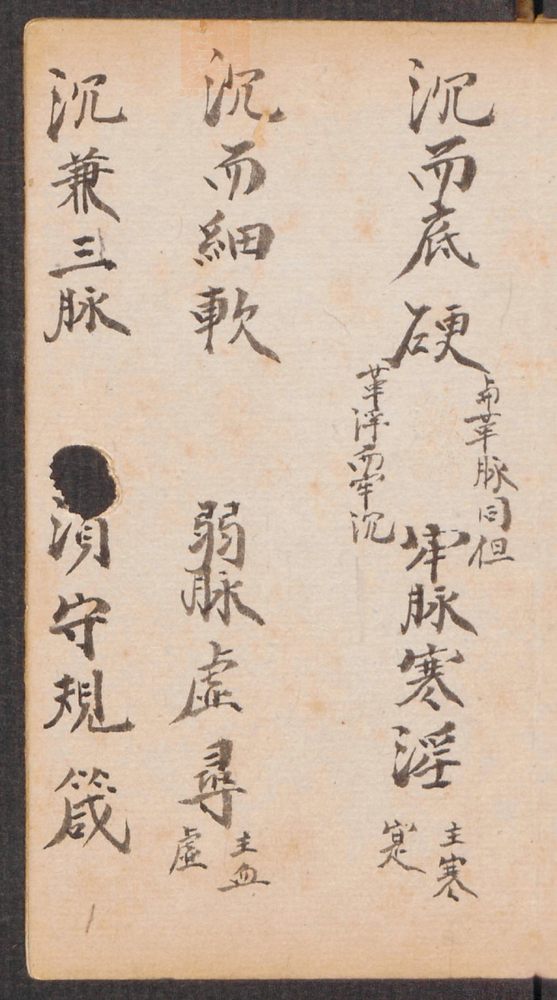 沉而底硬
与革脉同但
革浮而牢沉
牢脉寒淫
主寒
寔
沉而細軟
弱脉虛尋
主血
虛
沉兼三脉
須守規箴